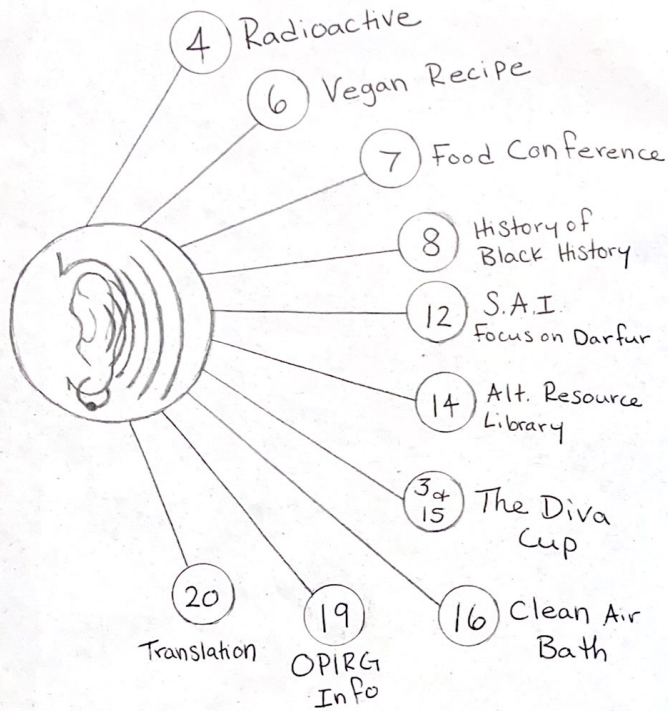 4 Radioactive
6 Vegan Recipe
7 Food Conference
8 History of
Black History
12 S.A.I.
Focus on Darfur
14 Alt. Resource
Library
3 &
15
The Diva
Cup
16 Clean Air
Bath
19
OPIRG
Info
20
Translation